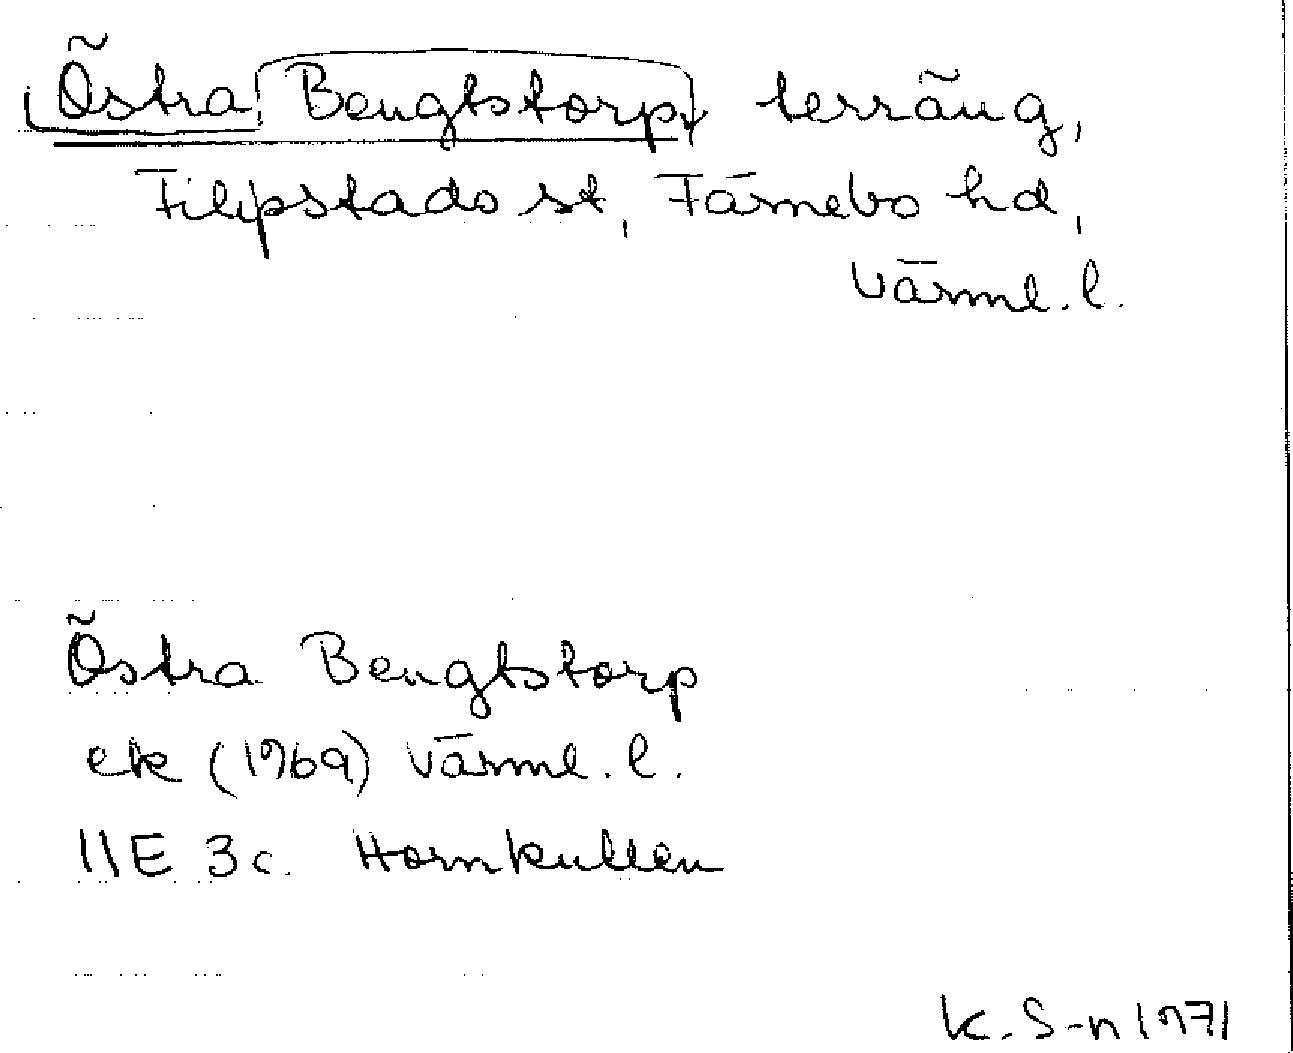 Östra Bengtstorp terräng,
Filipstads st, Färnebo hd,
Värml. l.
Östra Bengtstorp
ek (1969) Värml. l.
11E 3c. Hornkullen
K. S-n 1971